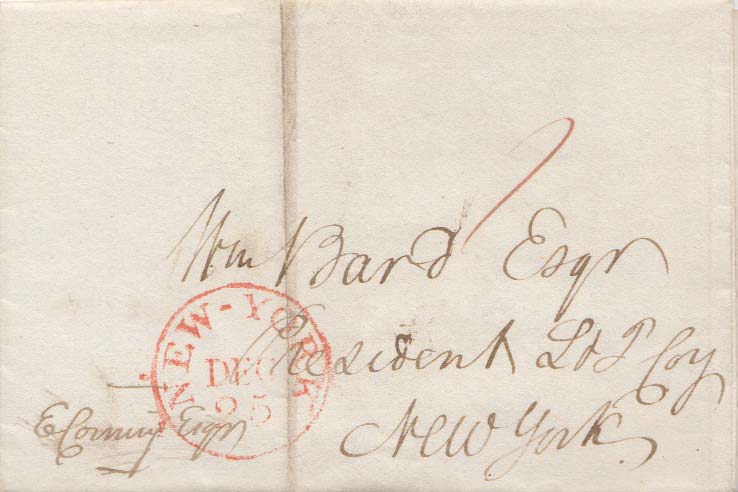 Wm Bard Esqr
President L & T Coy
New York
NEW-YORK
DEC
25
E Corning Esqr